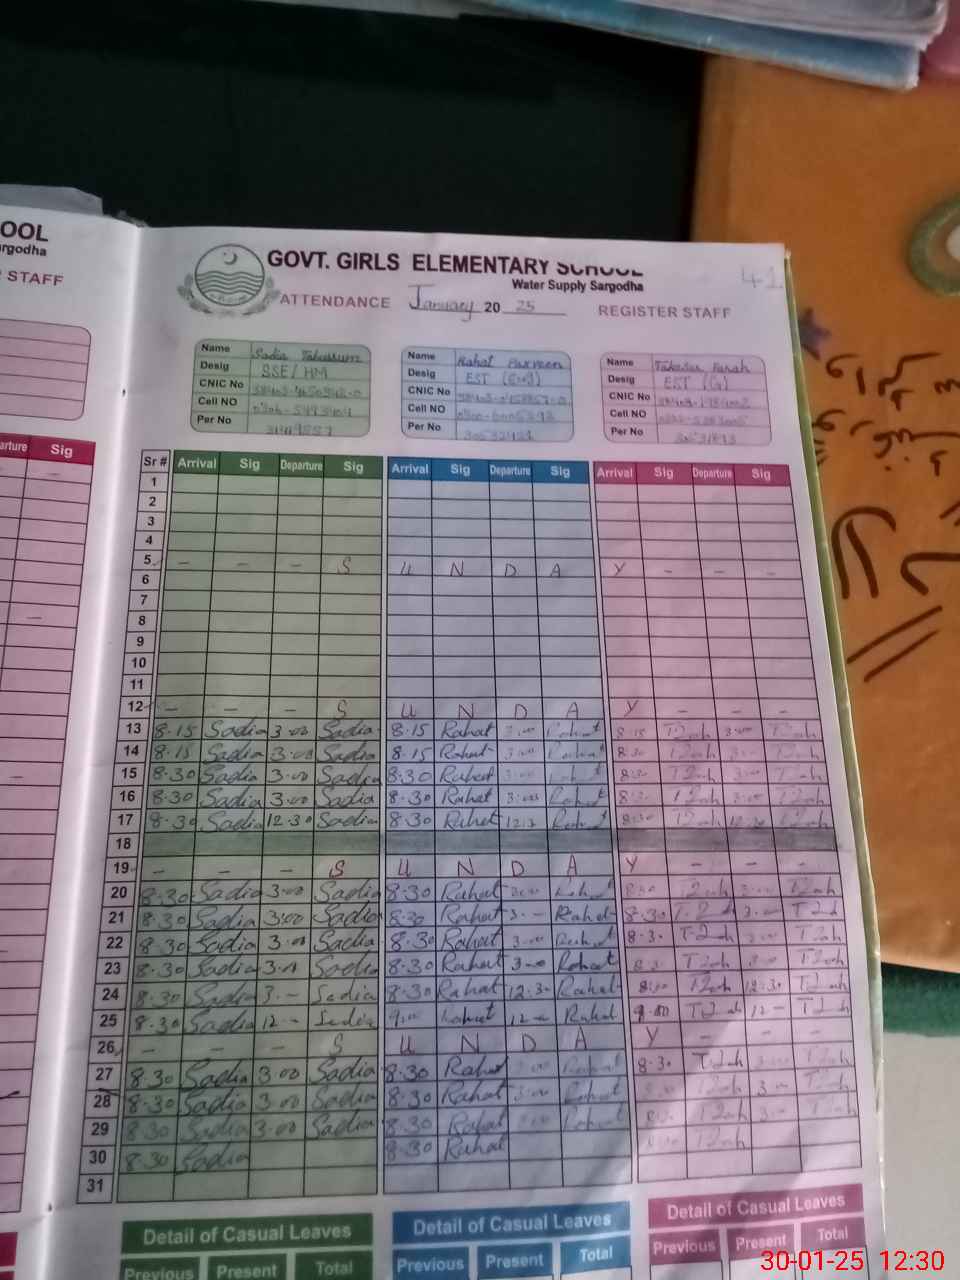 OOL
rgodha
STAFF
arture Sig
GOVT. GIRLS ELEMENTARY SCHOOL
Water Supply Sargodha
41
ATTENDANCE January 20 25 REGISTER STAFF
Name Sadia Tabassum
Desig SSE/HM
CNIC No
Cell NO
Per No
Name Rahat Parveen
Desig EST (Eng)
CNIC No
Cell NO
Per No
Name Farah
Desig EST (G)
CNIC No
Cell NO
Per No
Sr # Arrival Sig Departure Sig Arrival Sig Departure Sig Arrival Sig Departure Sig
1
2
3
4
5 - - - S U N D A Y - - -
6
7
8
9
10
11
12 - - - S U N D A Y - - -
13 8.15 Sadia 3.00 Sadia 8.15 Rahat 3.00 Rahat 8.15 T2ah 3.00 T2ah
14 8.15 Sadia 3.00 Sadia 8.15 Rahat 3.00 Rahat 8.30 T2ah 3.00 T2ah
15 8.30 Sadia 3.00 Sadia 8.30 Rahat 3.00 Rahat 8.30 T2ah 3.00 T2ah
16 8.30 Sadia 3.00 Sadia 8.30 Rahat 3.00 Rahat 8.30 T2ah 3.00 T2ah
17 8.30 Sadia 12.30 Sadia 8.30 Rahat 12.3 Rahat 8.30 T2ah 12.30 T2ah
18
19 - - - S U N D A Y - - -
20 8.30 Sadia 3.00 Sadia 8.30 Rahat 3.00 Rahat 8.30 T2ah 3.00 T2ah
21 8.30 Sadia 3.00 Sadia 8.30 Rahat 3.- Rahat 8.30 T.2ah 3.- T2ah
22 8.30 Sadia 3.00 Sadia 8.30 Rahat 3.00 Rahat 8.3. T2ah 3.00 T2ah
23 8.30 Sadia 3.00 Sadia 8.30 Rahat 3.00 Rahat T2ah T2ah
24 8.30 Sadia 3.- Sadia 8.30 Rahat 12.30 Rahat T2ah 12.30 T2ah
25 8.30 Sadia 12- Sadia 9.00 Rahat 12- Rahat 9.00 T2ah 12- T2ah
26 - - - S U N D A Y - - -
27 8.30 Sadia 3.00 Sadia 8.30 Rahat 3.00 Rahat 8.30 T2ah 3.00 T2ah
28 8.30 Sadia 3.00 Sadia 8.30 Rahat 3.00 Rahat T2ah 3.00 T2ah
29 8.30 Sadia 3.00 Sadia 8.30 Rahat Rahat T2ah 3.00 T2ah
30 8.30 Sadia 8.30 Rahat T2ah
31
Detail of Casual Leaves Detail of Casual Leaves Detail of Casual Leaves
Previous Present Total Previous Present Total Previous Present Total
30-01-25 12:30